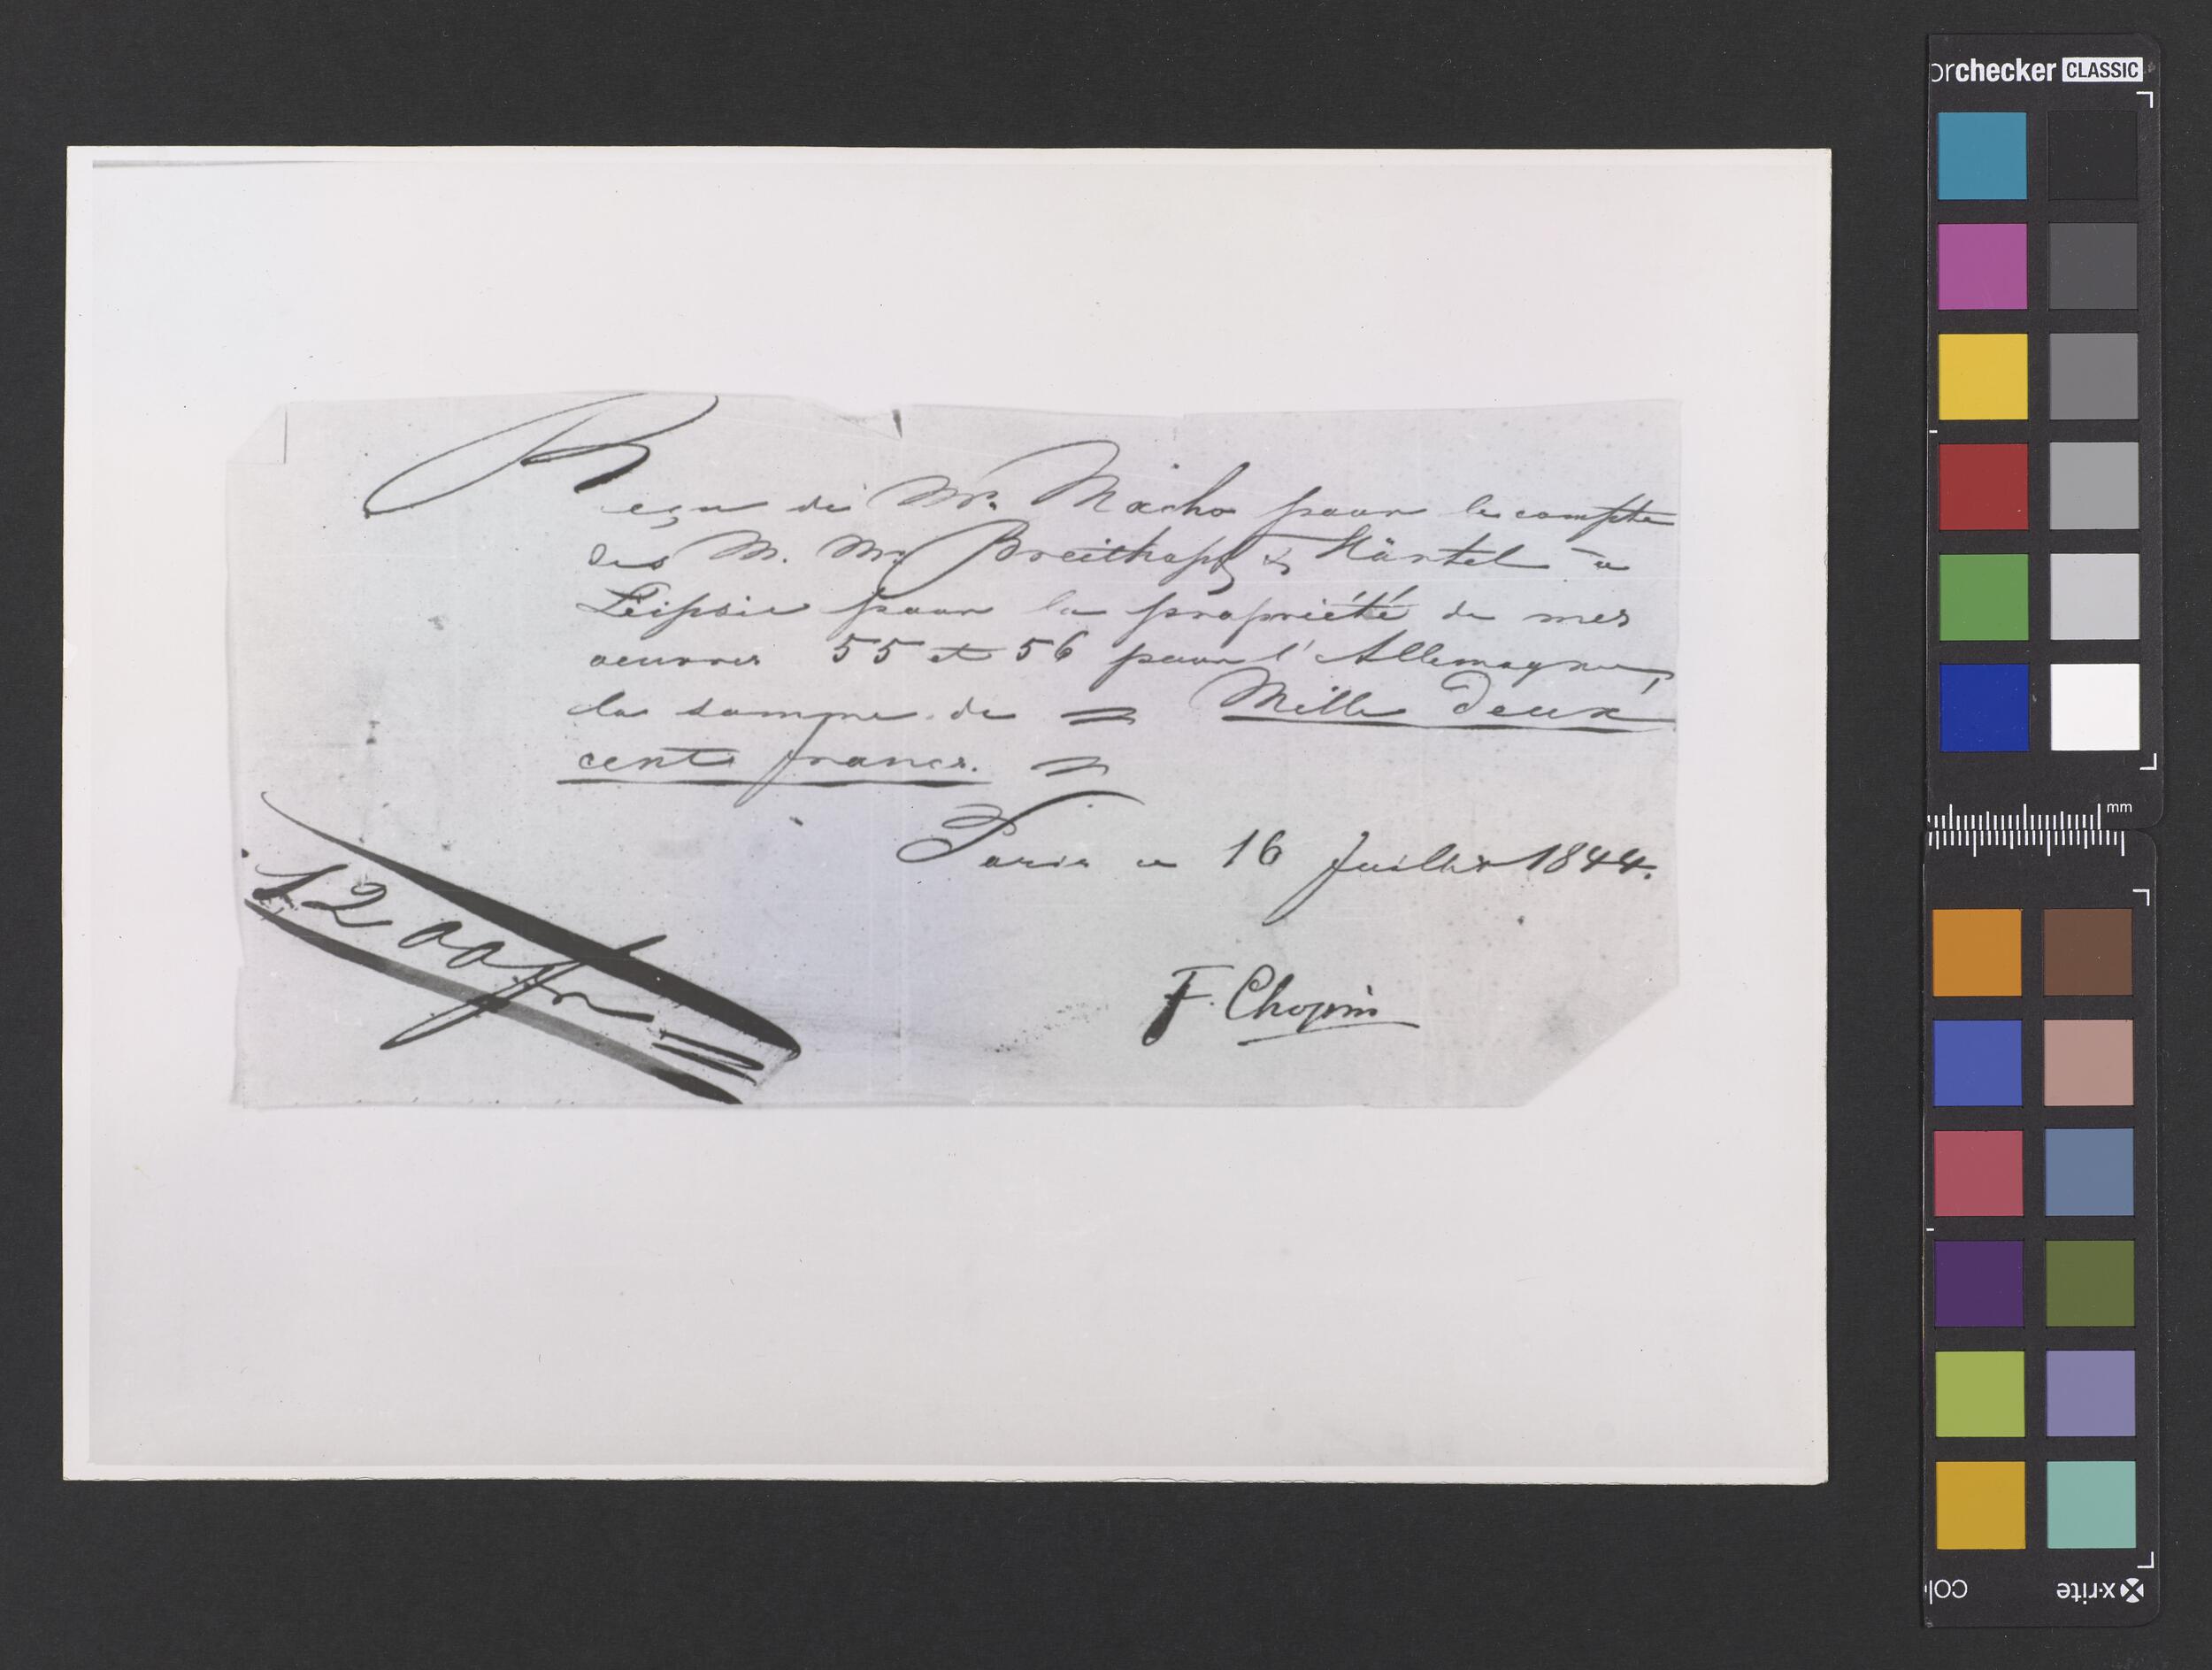 Reçu de Mr. Macho pour le compte
des M. Mrs Breitkopf & Härtel à
Leipsic pour la propriété de mes
oeuvres 55 et 56 pour l'Allemagne,
la somme de = Mille deux
cents francs. =
Paris ce 16 Juillet 1844.
1200 fr =
F. Chopin
orchecker CLASSIC
mm
x-rite
colo